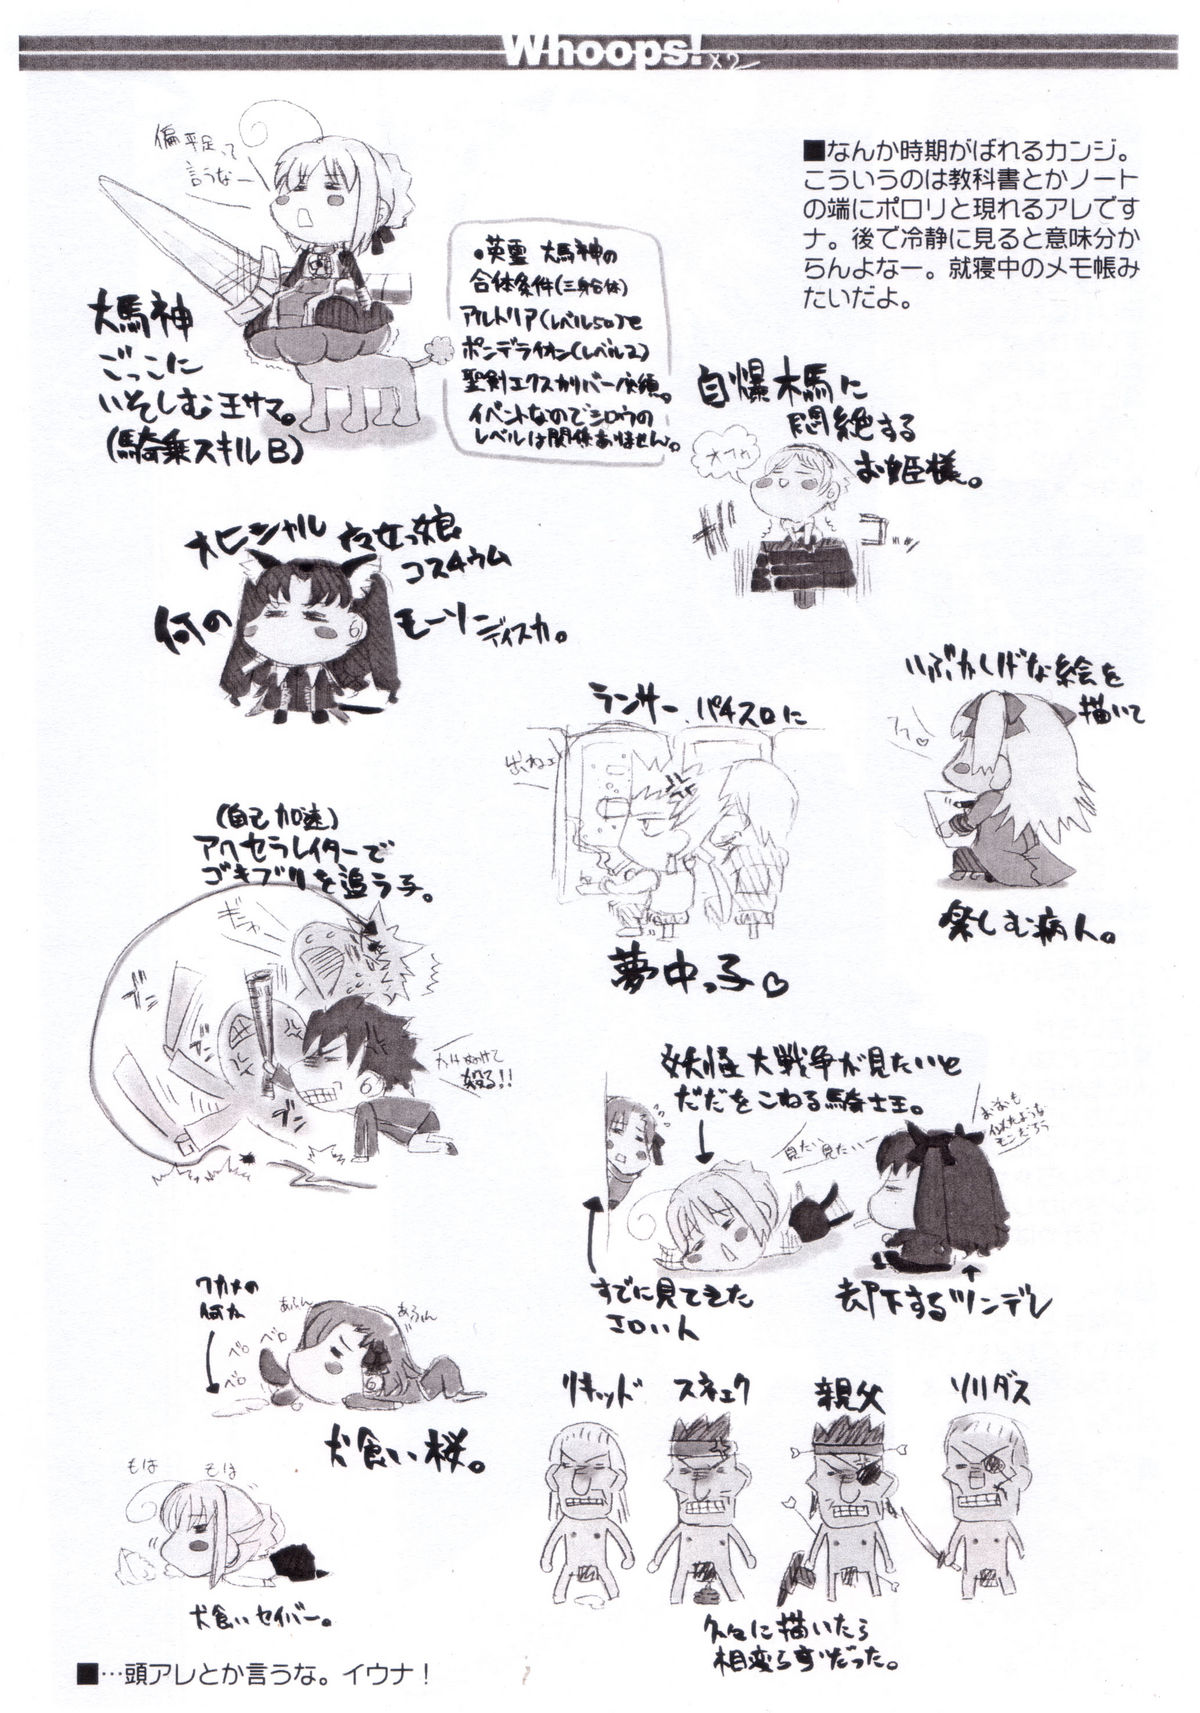 Whoops!
×2
■なんか時期がばれるカンジ。
こういうのは教科書とかノート
の端にポロリと現れるアレです
ナ。後で冷静に見ると意味分か
らんよなー。就寝中のメモ帳み
たいだよ。
偏平足って
言うなー
大馬神
ごっこに
いそしむ王サマ。
(騎乗スキルB)
。英霊 大馬神の
合体条件(三身合体)
アルトリア(レベル50)と
ポンデライオン(レベル2)
聖剣エクスカリバー必須。
イベントなのでシロウの
レベルは関係ありません。
自爆木馬に
悶絶する
お姫様。
オヒシャル
コスチウム
何の
モーソーディスカ。
いぶかしげな絵を
描いて
楽しむ病人。
ランサー、パチスロに
出ねェ
夢中っ子♡
(自己加速)
アクセラレイターで
ゴキブリを追う子。
ギャッ
殺る!!
妖怪大戦争が見たいと
だだをこねる騎士王。
見たい見たいー
すでに見てきた
エロい人
却下するツンデレ
ワカメの
何か
ペロ
ペロ
ペロ
あふん
あふん
犬食い桜。
もほ
もほ
犬食いセイバー。
リキッド
スネェク
親父
ソリダス
久々に描いたら
相変らずだった。
■…頭アレとか言うな。イウナ!